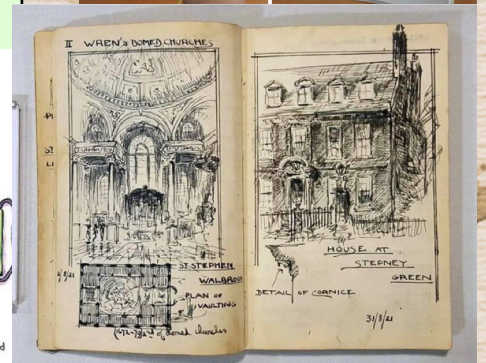 II WREN'S DOMED CHURCHES
4/8/21
ST STEPHEN
WALBROOK
PLAN OF
VAULTING
of Domed Churches
HOUSE AT
STEPNEY
GREEN
DETAIL OF CORNICE
31/8/21